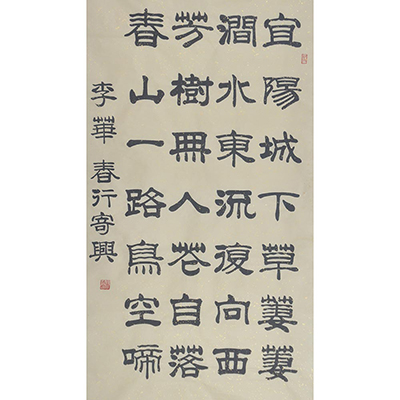 宜陽城下草萋萋
澗水東流復向西
芳樹無人花自落
春山一路鳥空啼
李華 春行寄興